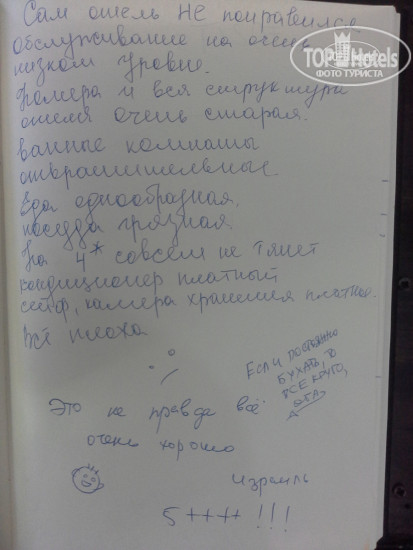 Сам отель НЕ понравился
обслуживание на очень
низком уровне.
TOPHotels
ФОТО ТУРИСТА
Номера и вся структура
отеля очень старая.
ванные комнаты
отвратительные.
Еда однообразная,
посуда грязная
На 4* совсем не тянет
кондиционер платный
сейф, камера хранения платные.
Всё плохо
Если постоянно
бухать, то
все круто,
Это не правда всё
очень хорошо
Израиль
5 ++++ !!!